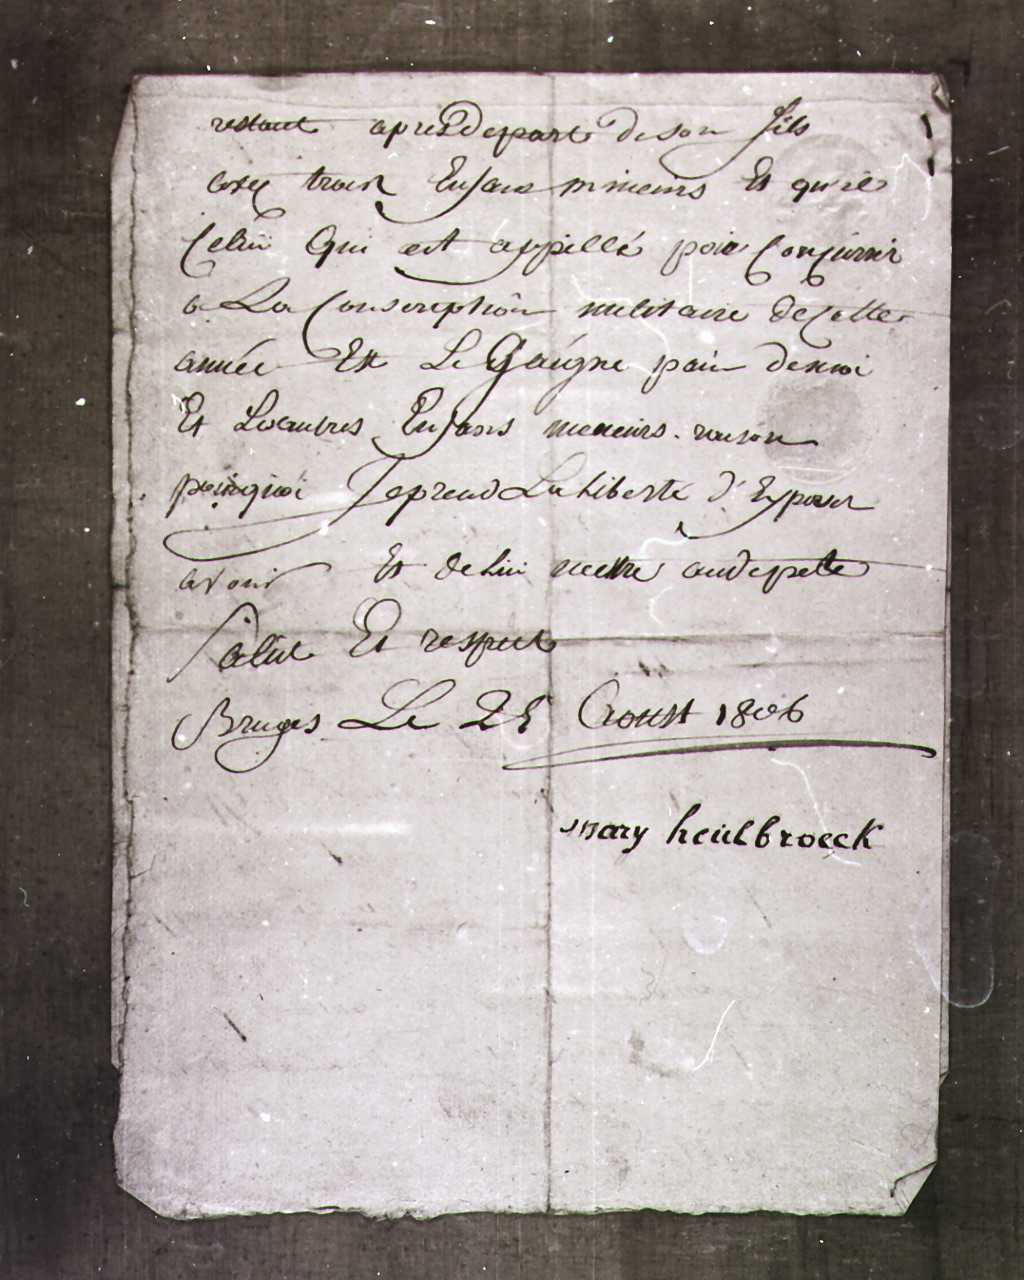 restant apres depart de son fils
avec trois Enfans mineurs Et qu'il
Celui Qui est appellé pour Concourir
a La Conscription militaire de Cette
année Est Le Gaigne pain de moi
Et Lesautres Enfans mineurs. raison
pourquoi Jeprend La Liberté d'Exposer
Et de Lui mettre audepete
Salut Et respect
Bruges Le 25 Aoust 1806
mary heulbroeck